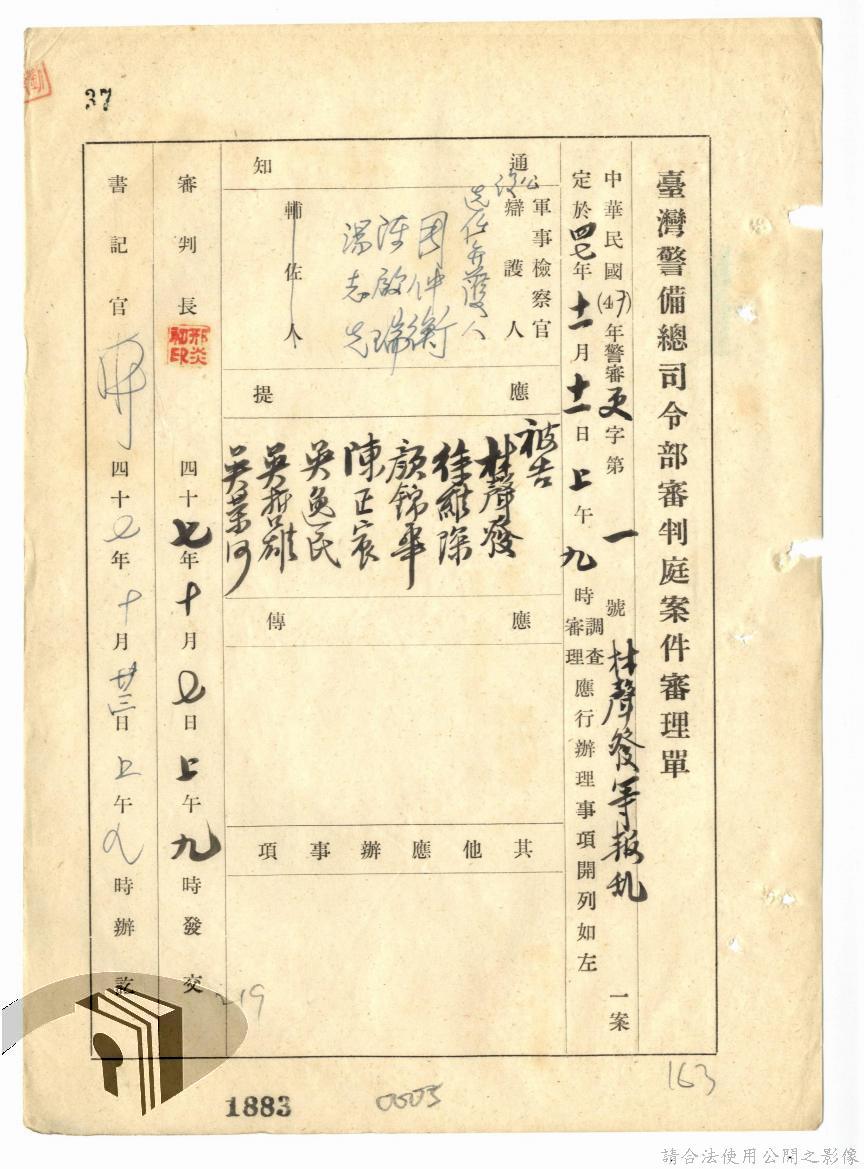 37
臺灣警備總司令部審判庭案件審理單
中華民國(47)年警審更字第一號林聲發等叛乱一案
定於四七年十一月十一日上午九時調查審理應行辦理事項開列如左
通知
軍事檢察官
公設辯護人
選任弁護人
周仲衡
陳啟瑞
湯志先
輔佐人
應提
被告
林聲發
徐維琛
顏錦華
陳正宸
吳逸民
吳哲雄
吳景河
應傳
其他應辦事項
審判長
四十七年十月七日上午九時發交
書記官
四十七年十月廿三日上午九時辦訖
219
1883
0005
163
請合法使用公開之影像